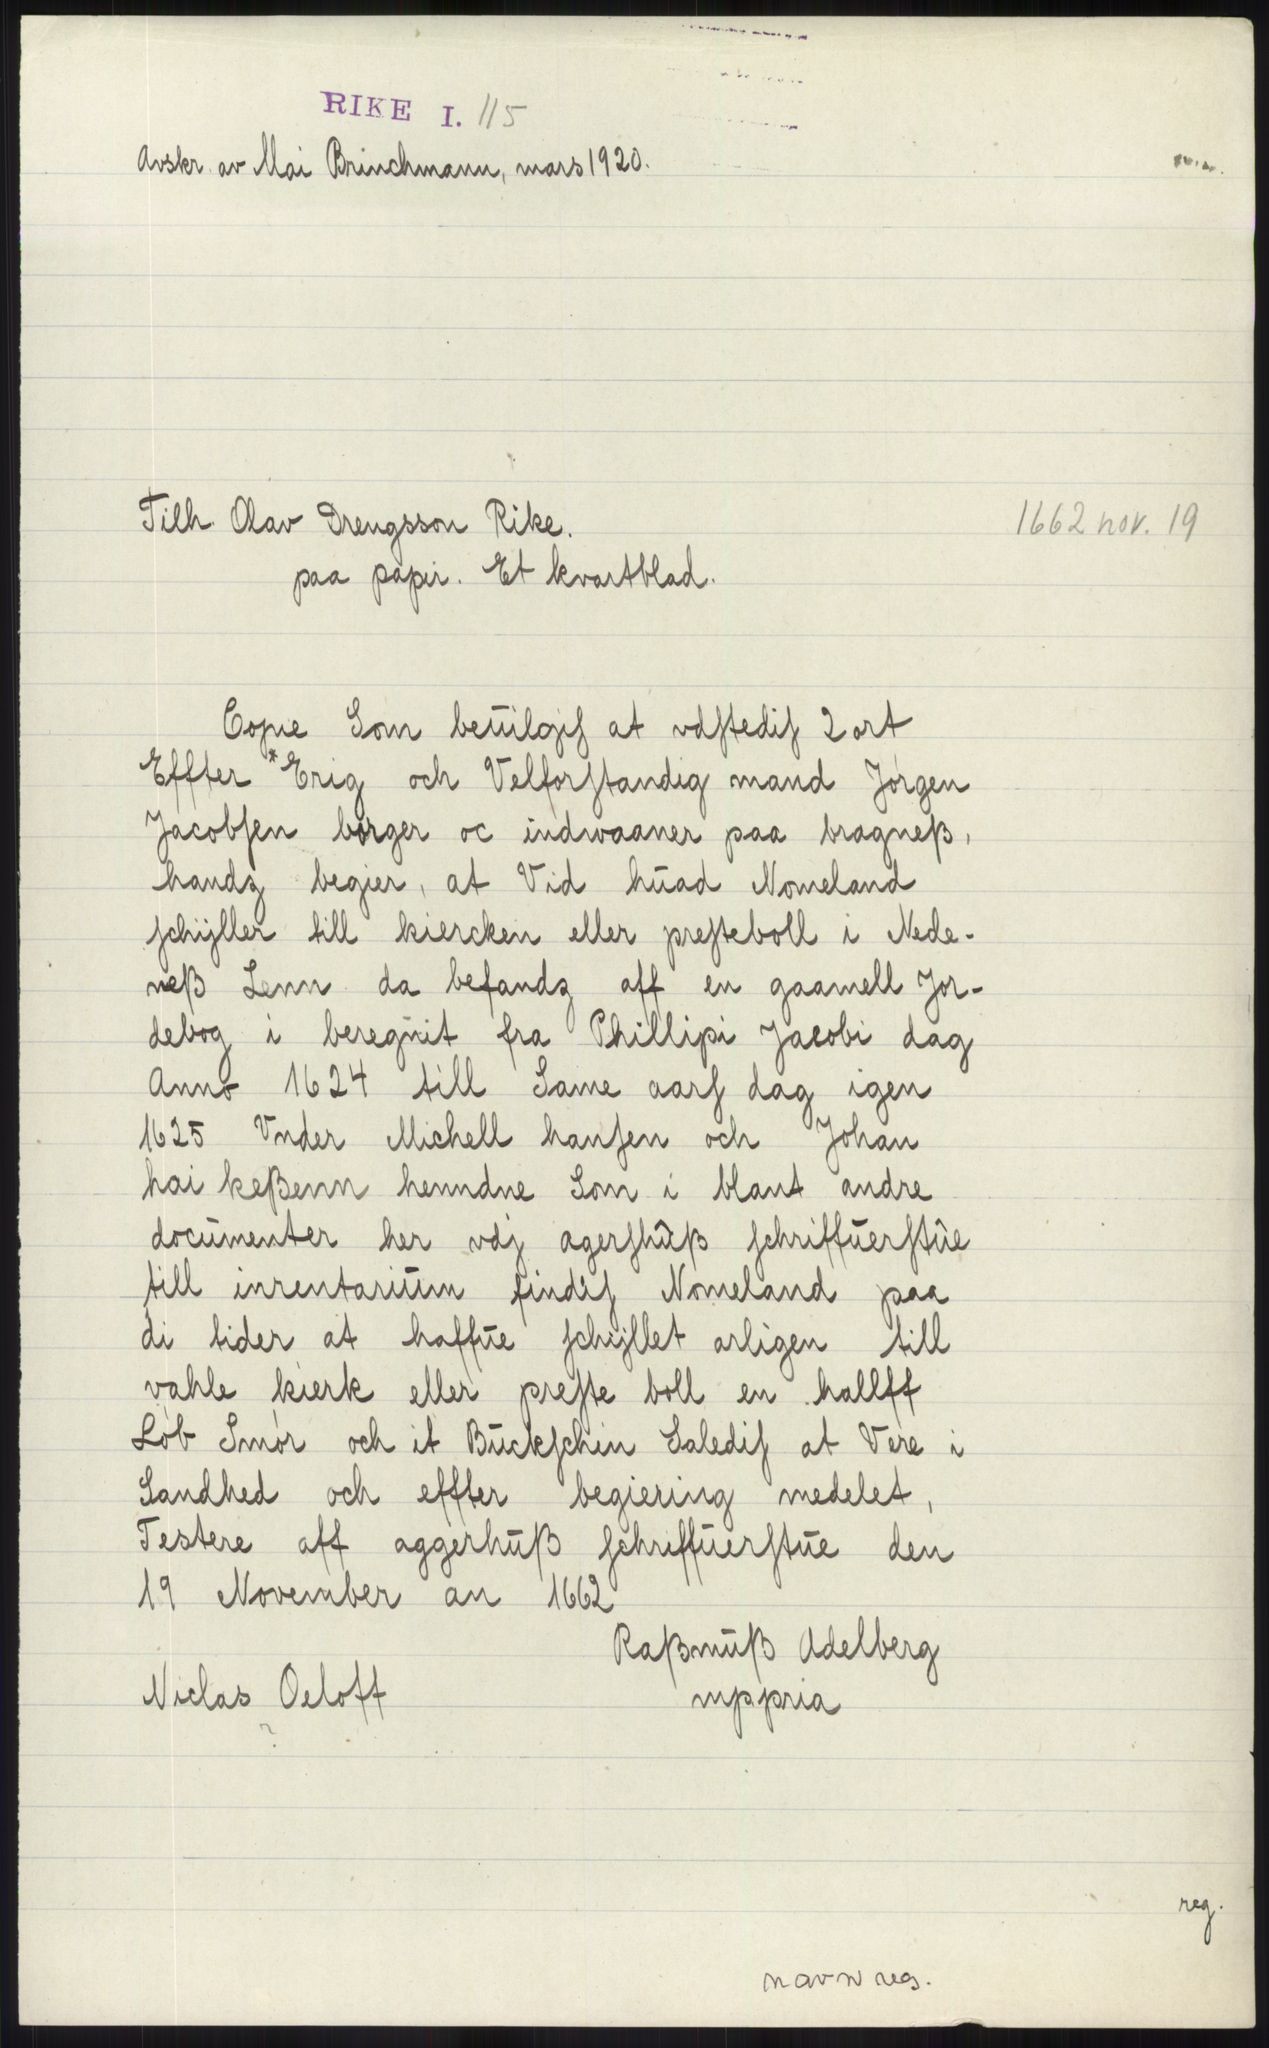 RIKE I. 115
Avskr. av Mai Brinchmann, mars 1920.
Tilh. Olav Drengsson Rike.
1662 nov. 19
paa papir. Et kvartblad.
Copie Som beuilgis at vdstedis 2 ort
Effter *Erig och Velforstandig mand Jørgen
Jacobsen børger oc indwaaner paa bragneß,
handz begier, at Vid huad Nomeland
schyller till kiercken eller presteboll i Nede-
neß Lenn da befandz aff en gaamell Jor-
debog i beregnit fra Phillipi Jacobi dag
Anno 1624 till Same aars dag igen
1625 Vnder Michell hansen och Johan
hai keßenn henndne Som i blant andre
documenter her vdj agershuß schriffuerstue
till inrentarium findis Nomeland paa
di tider at haffue schyllet arligen till
vahle kierk eller preste boll en hallff
Løb Smør och it Buckschin Saledis at Vere i
Sandhed och effter begiering medelet,
Testere aff aggerhuß schriffuerstue den
19 November an 1662
Raßmuß Adelberg
Niclas Oeloff
mppria
?
reg.
navn reg.